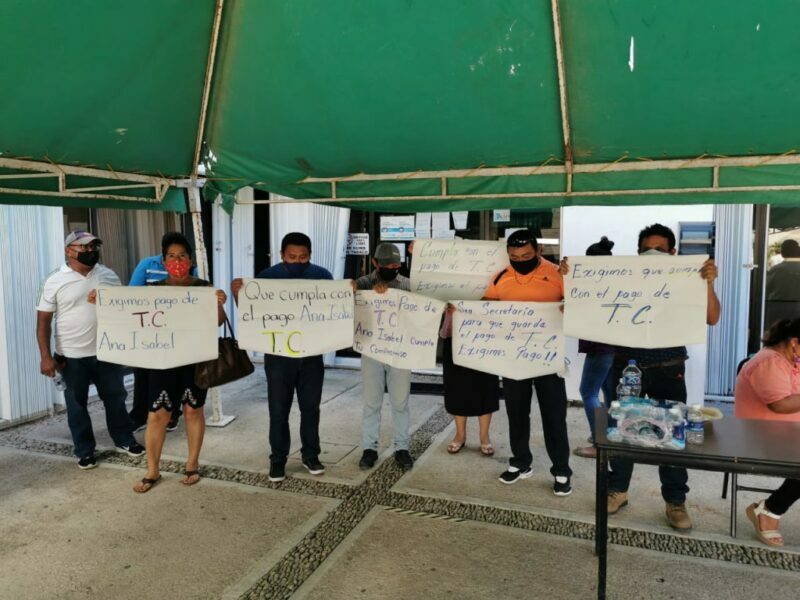 Exigimos pago de
T.C.
Ana Isabel
Que cumpla con
el pago Ana Isabel
T.C.
Exigimos Pago de
T.C. Ana
Isabel Cumpla
Tu Compromiso
Cumpla con el
pago de T.C.
Exigimos el
Sra Secretaria
para que guarda
el pago de T.C.
Exigimos Pago!!
Exigimos que cumpla
con el pago de
T.C.